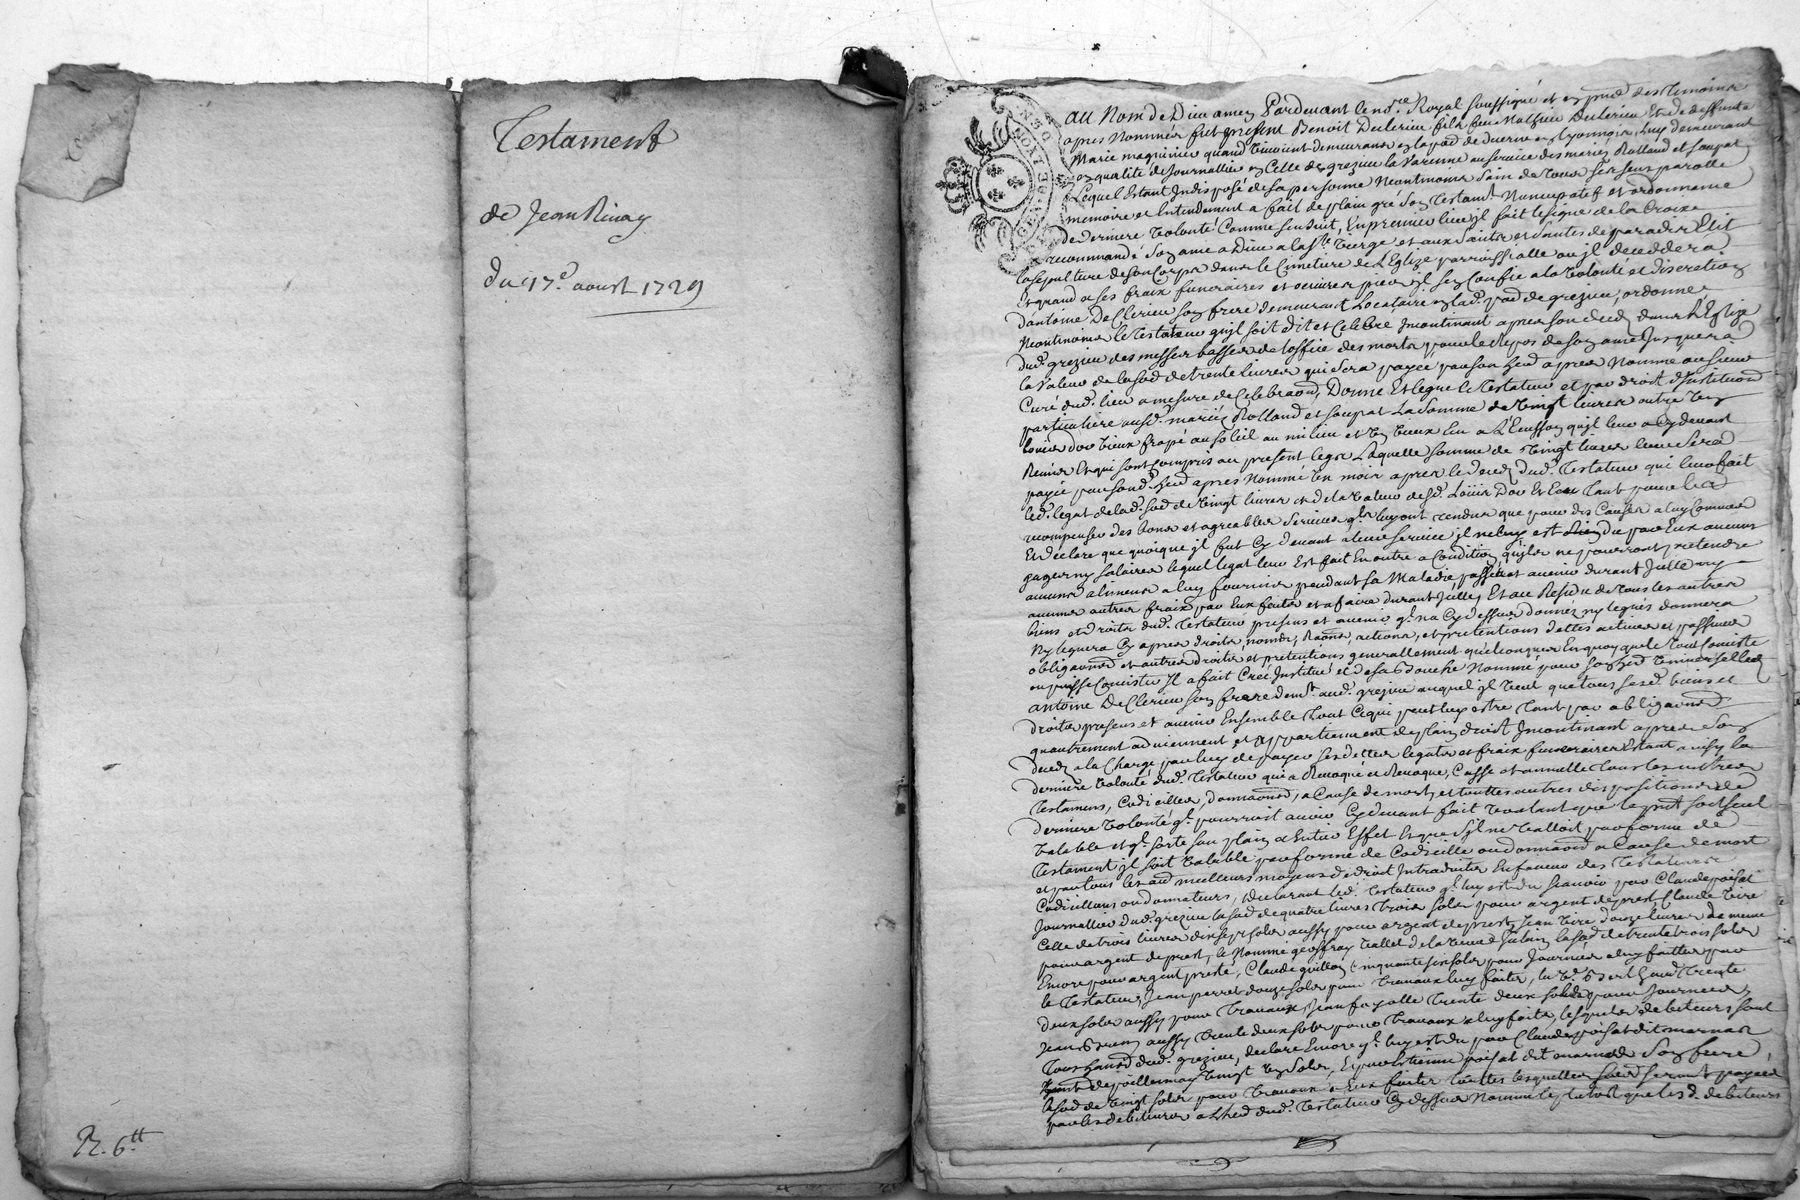 Testament
de Jean Rivay
du 17e. aoust 1729
R. 6tt
GEN MONT
au Nom de Dieu amen Pardevant le nore. Royal soussigné et en pnce des temoins
apres Nommés fut present Benoit Declerieu fils feu Mathieu Declerieu et de deffunte
Marie magninin quand vivoient demeurans en la pasd de duerne en Lyonnois, Luy demeurant
en qualité de Journallier en Celle de grezieu la Varenne au service des mariés Rolland et soupat
Lequel Estant Indisposé de sa personne Neantmoins sain de tous ses sens parolle
memoire et Entendement a fait de plain gré son testamt. Nuncupatif et ordonnance
de derniere Volonté Comme sensuit, En premier lieu jl fait le signe de la Croix
recommandé son ame a Dieu a la ste Vierge et aux saints et saintes de paradis Elit
la sepulture de son Corps dans le Cimetiere de L'Eglize parroissialle ou jl deceddera
Et quand a ses fraix funeraires et oeuvres pies jl s'en Confie a la Volonté et discretion
d'antoine DeClerieu son frere demeurant Locataire en lad. pasd de grezieu, ordonne
Neantmoins le testateur qu'jl soit dit et Celebré Jncontinant apres son deceds dans L'Eglize
dud. grezieu des messes basses de l'office des morts pour le Repos de son ame Jusques a
la Valeur de la sod de trente Livres qui sera payée par son herd apres Nommé au sieur
Curé dud. lieu a mesure de Celebraon, Donne Et legue le testateur et par droit d'Jnstituaon
particuliere ausd. mariés Rolland et soupat La Somme de vingt livres outre un
louis d'or vieux frapé au soleil au milieu et un vieux Ecu a L'Ecusson qu'jl leur a Cy devant
Remis Et qui sont Compris au present legs Laquelle somme de vingt livres leur sera
payée par sond. herd apres Nommé un mois apres le deceds dud. Testateur qui leur fait
led. legat de lad. sod de vingt livres et de la valeur desd. Louis D'or Et Ecu tant pour les
recompenser des bons et agreables services ql. luy ont rendus que pour des Causes a luy Connues
Et declare que quoique jl fut Cy devant a leur service jl ne luy est rien du par Eux aucuns
gages ny salaires lequel legat leur Est fait En outre a Condition qu'jls ne pourront pretendre
aucuns alimens a luy fournis pendant sa Maladie, passée et avenir durant Jcelle ny
aucuns autres fraix par Eux faites et a faire durant Jcelle, Et au Residu de tous les autres
biens et droits dud. Testateur presens et avenir ql. n'a Cy dessus donnés ny legués donnera
Ny leguera Cy apres droits, noms, Raons, actions, et pretentions dettes actives et passives
obligaons et autres droits et pretentions generallement quelconques En quoy que le tout Consiste
ou puisse Consister Jl a fait Créé Jnstitué et de sa bouche Nommé pour son herd universelle
antoine DeClerieu son frere demt. aud. grezieu auquel jl veut que tous sesd. biens et
droits presens et avenir Ensemble tout Ce qui peut luy estre tant par obligaons
qu'autrement adviennent et appartiennent de plain droit Jncontinant apres son
deceds a la Charge par luy de payer ses dettes legats et fraix funeraires Estant ainsy la
derniere volonté dud. Testateur qui a Revoqué et Revoque, Casse et annulle tous les autres
Testamens, Codicilles, donnaons, a Cause de mort, et touttes autres dispositions de
derniere volonté ql. pourroit avoir Cy devant fait voulant que le pnt soit seul
valable et ql. sorte son plain et Entier Effet Et que s'jl ne valloit par forme de
Testament jl soit valable par forme de Codicille ou donnaon a Cause de mort
et par tous les aud meilleurs moyens de droit Jntroduites En faveur des Testateurs
Codicillans ou donnateurs, Declarant led. Testateur ql. luy est du scavoir par Claude poisat
Journallier dud. grezieu la sod de quatre livres trois sols pour argent de prest, Claude Vire
Celle de trois livres dix sept sols aussy pour argent de prest, Jean Vire douze livres de meme
pour argent de prest, le Nommé geoffray vallet de la veuve Julain la sod de trente trois sols
Encore pour argent presté, Claude guillon Cinquante six sols pour Journées a luy faittes par
le Testateur, Jean perret douze sols pour travaux luy faites, trente
deux sols aussy pour travaux, Jean fayolle trente deux sols pour Journées
Jean aussy trente deux sols pour travaux a luy faits, lesquels debiteurs sont
tous dud. grezieu, declare Encore ql. luy est du par Claude poisat dit marnas
vingt un sols, Et par Estienne poisat dit marnas son frere,
la sod de vingt sols pour travaux a Eux faites touttes lesquelles sods seront payées
par les debiteurs a lherd dud. Testateur Cy dessus Nommé plutost que lesd. debiteurs